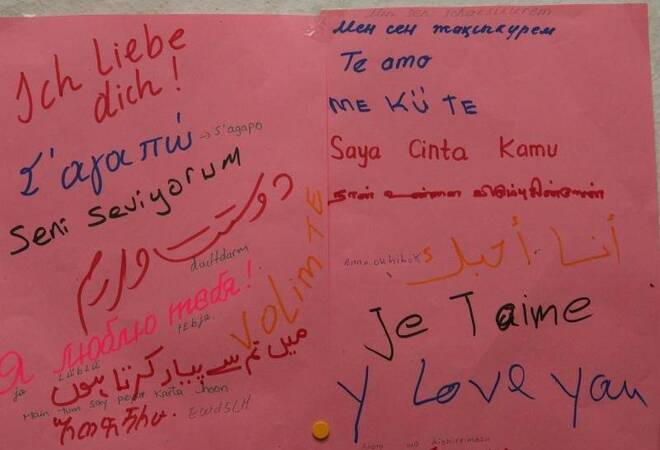 Ich Liebe
dich!
Σ'αγαπώ → s'agapo
Seni Seviyorum
دوستت دارم
duchtdarm
Я люблю тебя!
ja Lublü tebja.
VOLIM TE
میں تم سے پیار کرتا ہوں
Main tum say peyar Karta hoon
Men sen
Мен сен жақсыкурем
Te amo
ME KÜ TE
Saya Cinta Kamu
நான் உன்னை விரும்புகின்றேன்
أنا أحبك
Je Taime
y Love yau